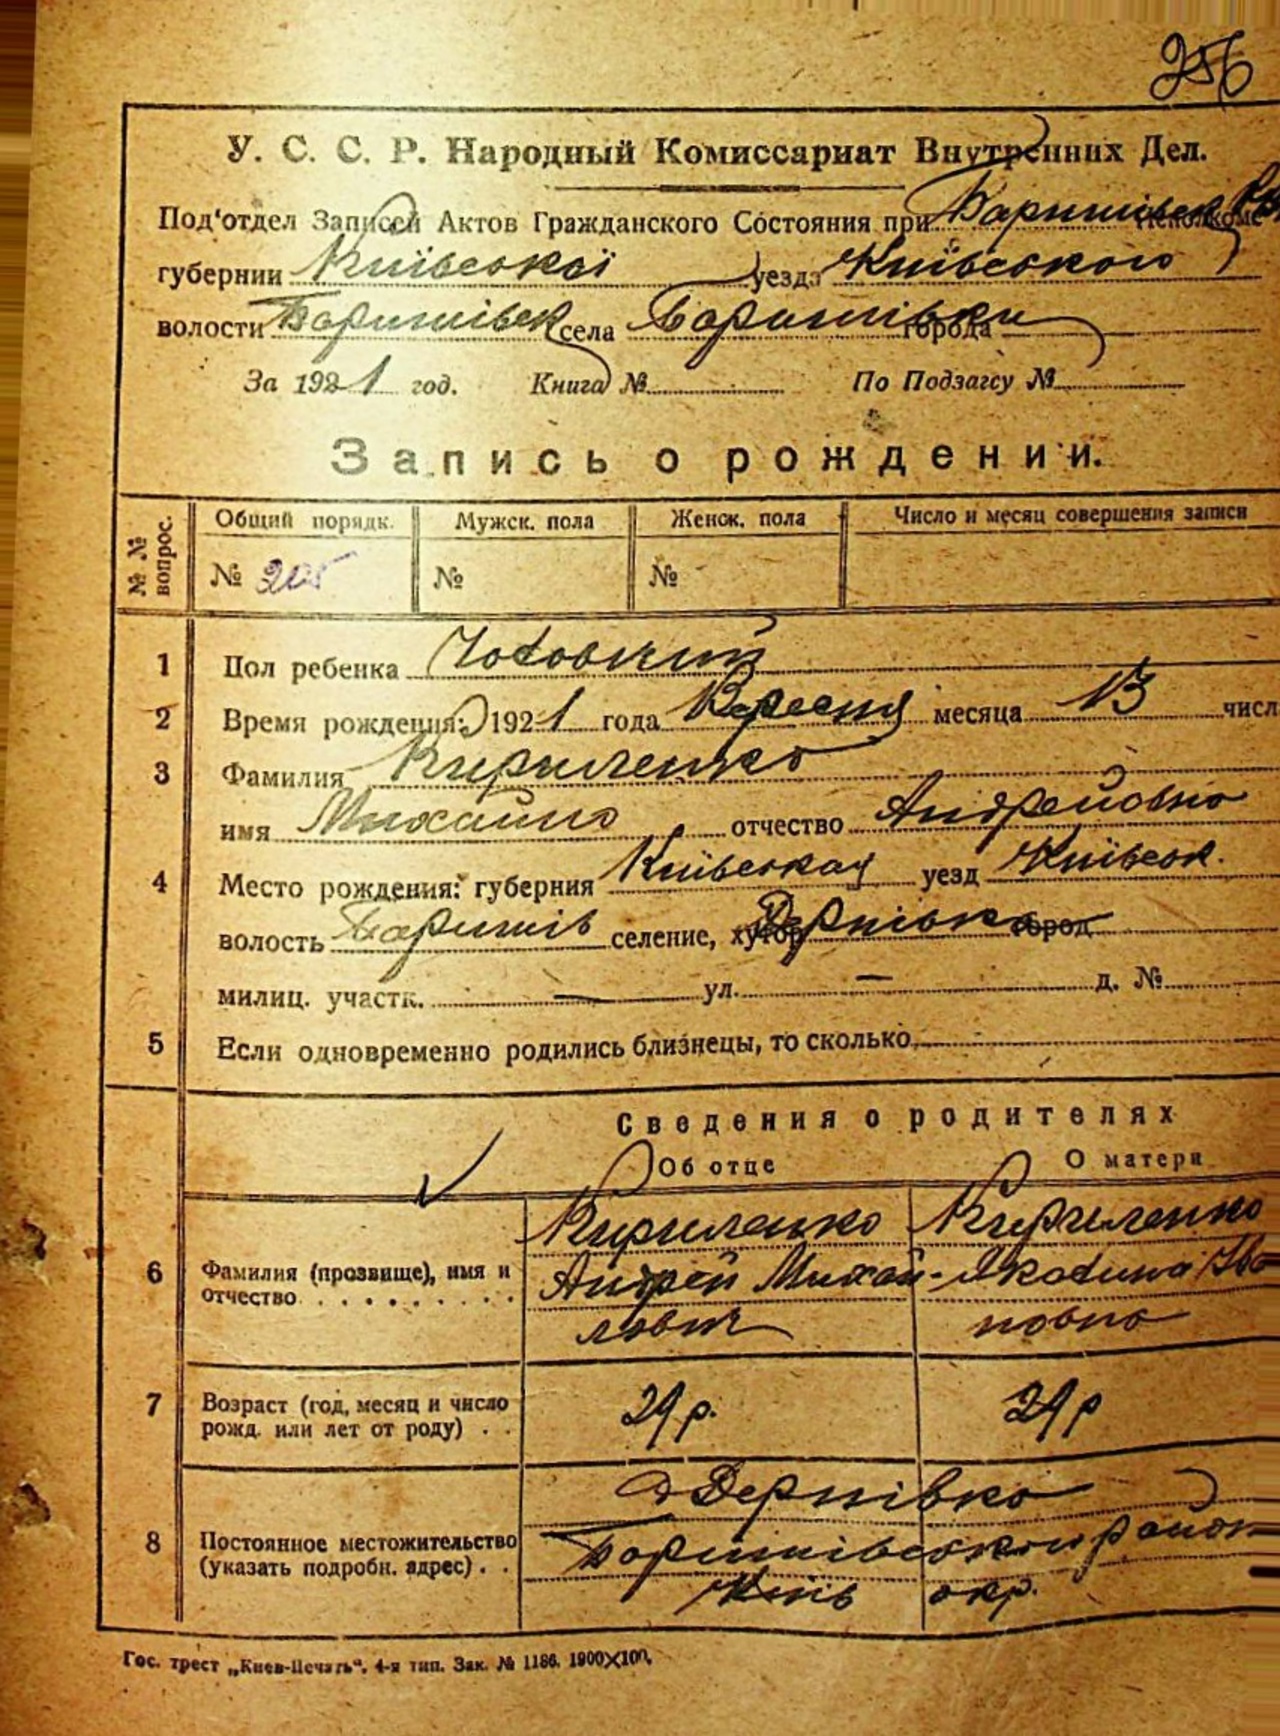 256
У. С. С. Р. Народный Комиссариат Внутренних Дел.
Под'отдел Записей Актов Гражданского Состояния при Баришівск
губернии Київської уезда Київського
волости Баришівск села Баришівки города
За 1921 год. Книга № По Подзагсу №
Запись о рождении.
№ № вопрос. Общий порядк. Мужск. пола Женск. пола Число и месяц совершения записи
№ 205 № №
1 Пол ребенка Чоловічий
2 Время рождения: 1921 года Вересня месяца 13 числ
3 Фамилия Кириленко
имя Михайло отчество Андрейовно
4 Место рождения: губерния Київская уезд Київськ.
волость Баришів селение, хутор Дернівка город
милиц. участк. — ул. — д. №
5 Если одновременно родились близнецы, то сколько
Сведения о родителях
Об отце О матери
Кириленко Кириленко
6 Фамилия (прозвище), имя и отчество Андрей Михай- Ива
лович новна
7 Возраст (год, месяц и число рожд. или лет от роду) 29 р. 29 р
с Дернівка
8 Постоянное местожительство (указать подробн. адрес) Баришівського район
Київ окр.
Гос. трест „Киев-Печать", 4-я тип. Зак. № 1186. 1900×100.